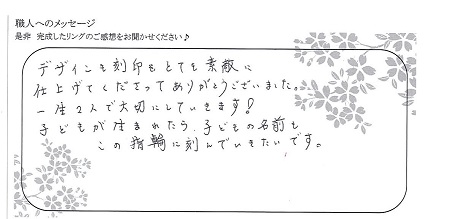 職人へのメッセージ
是非 完成したリングのご感想をお聞かせください♪
デザインも刻印もとても素敵に
仕上げてくださってありがとうございました。
一生2人で大切にしていきます!
子どもが産まれたら、子どもの名前も
この指輪に刻んでいきたいです。